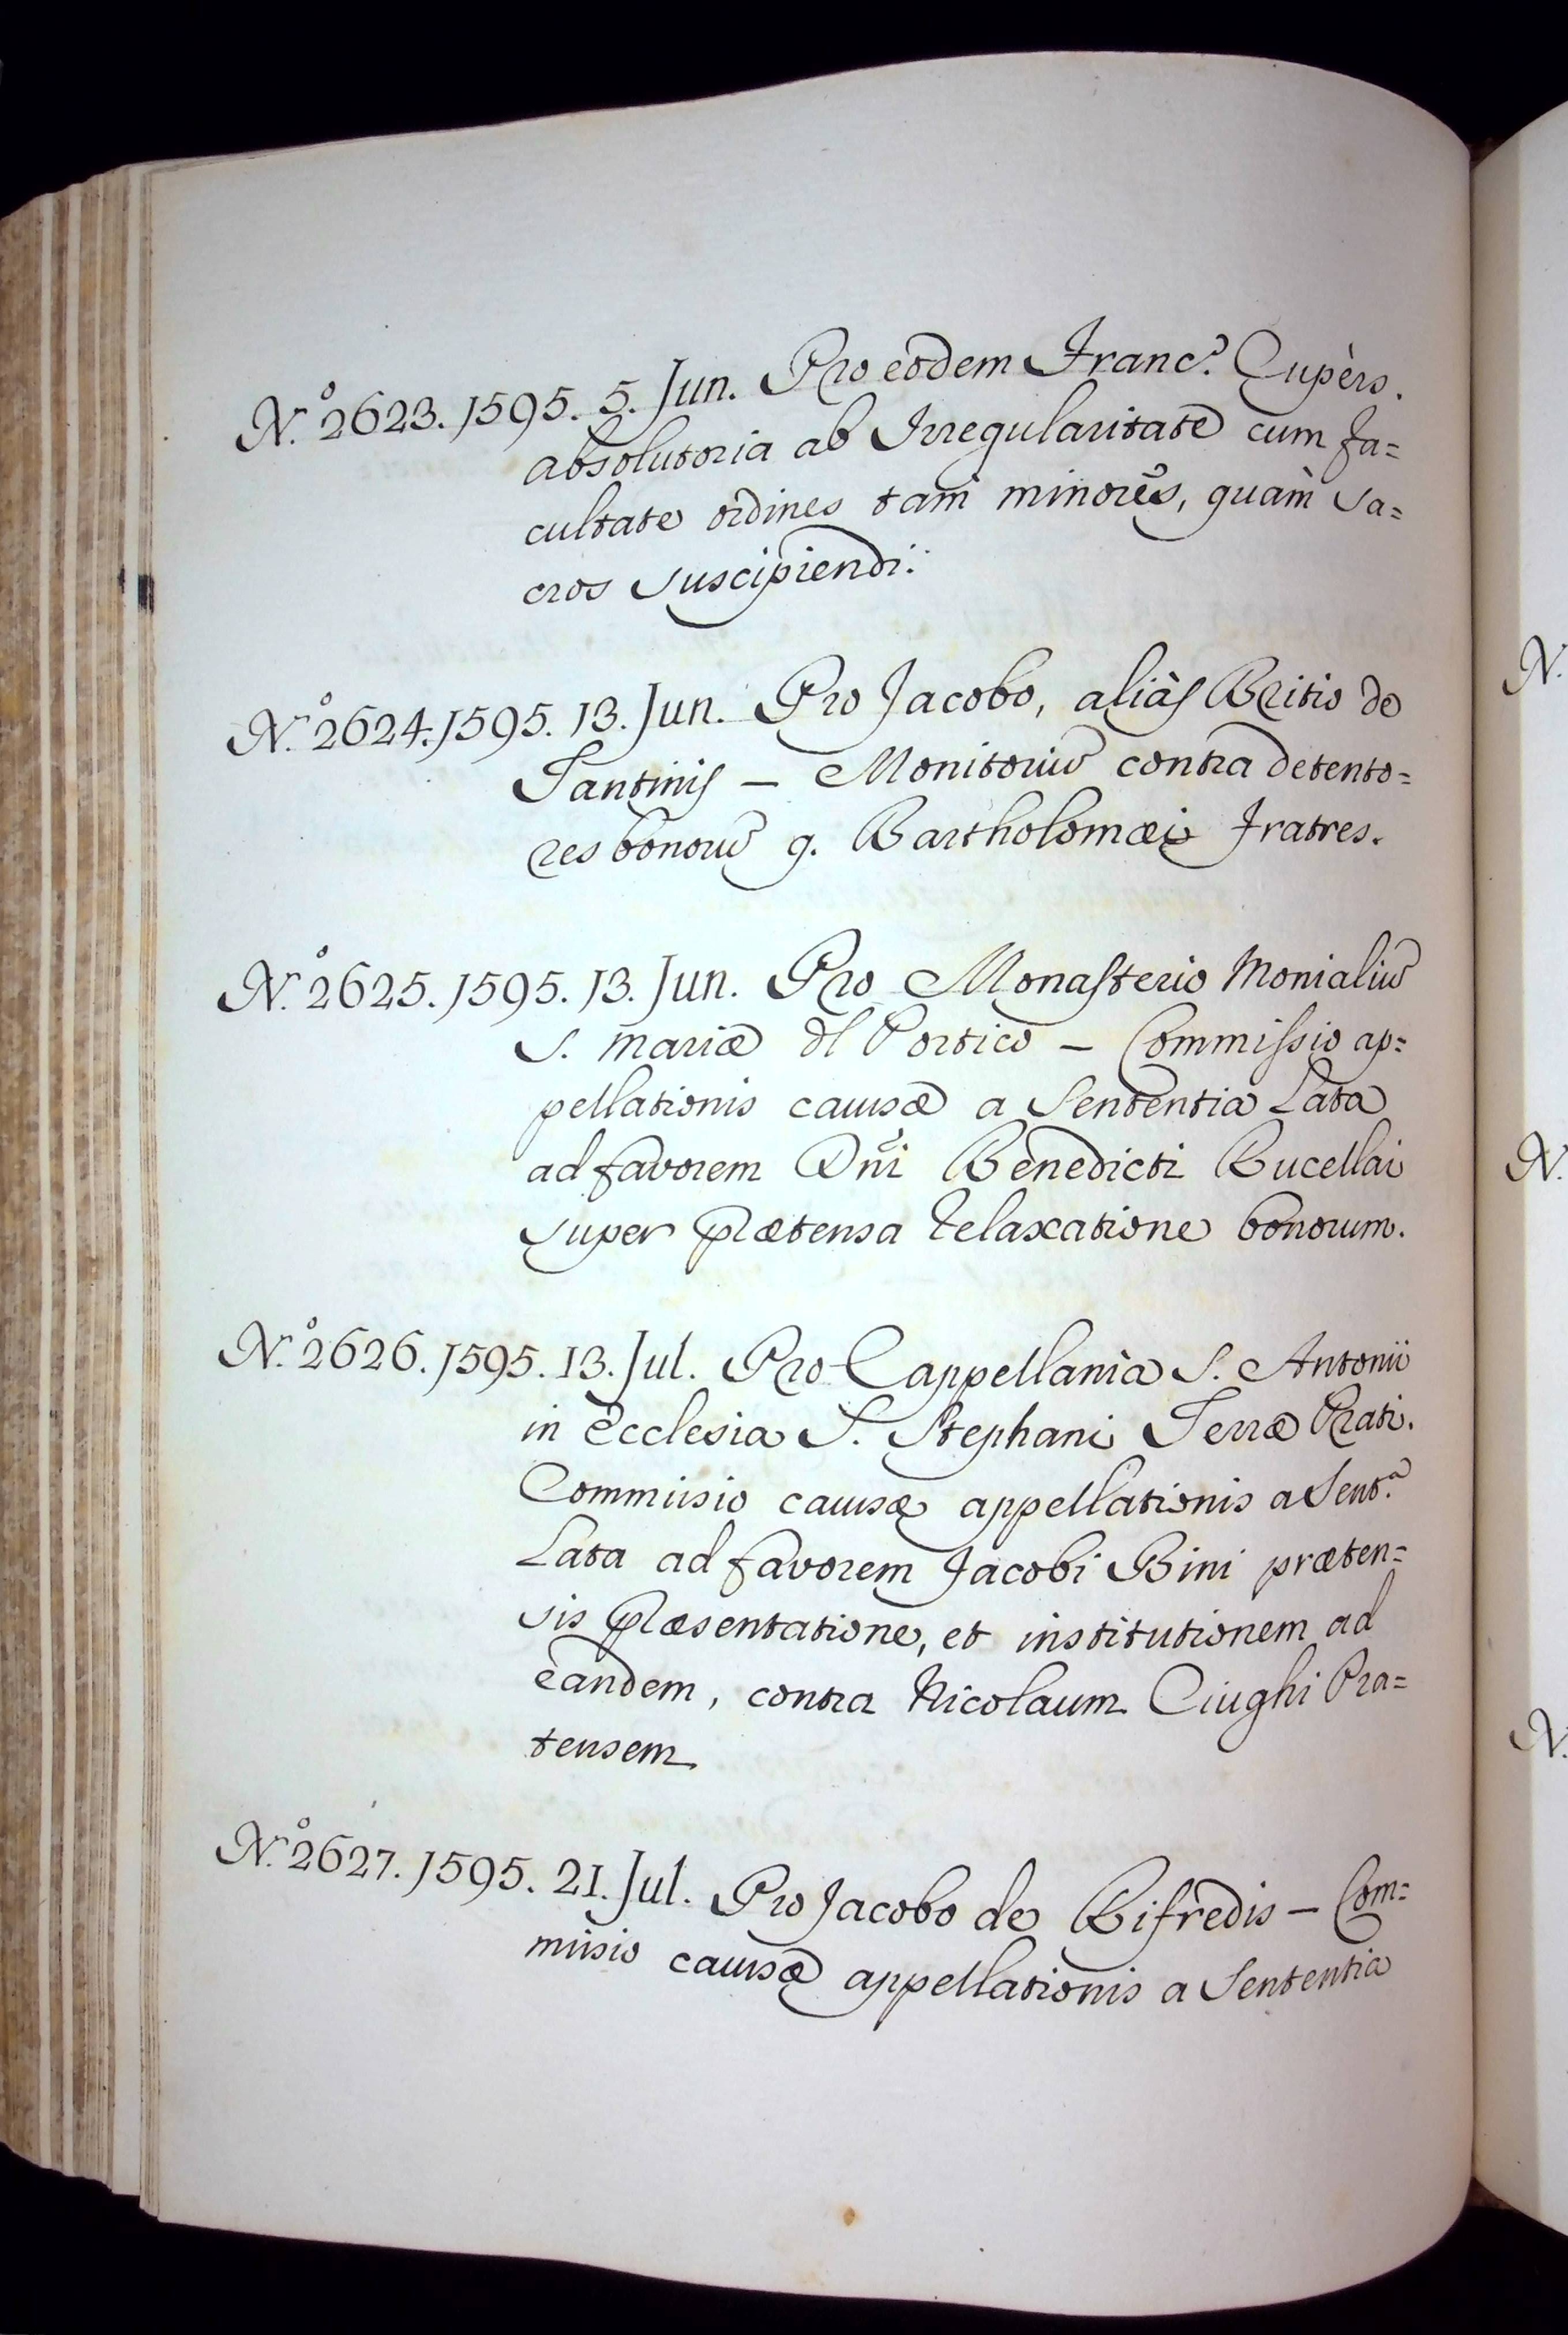 N.º 2623. 1595. 5. Jun. Pro eodem Franc.º Cupèrs.
absolutoria ab Irregularitate cum fa=
cultate ordines tam minores, quàm sa=
cros suscipiendi:
N.º 2624. 1595. 13. Jun. Pro Jacobo, aliàs Britio de
Tantinis — Monitoriũ contra detento=
res bonorũ q. Bartholomæi Fratres.
N.º 2625. 1595. 13. Jun. Pro Monasterio Monialiũ
S. Mariæ dl Portico — Commissio ap=
pellationis causæ a Sententia Lata
ad favorem Dñi Benedicti Bucellai
super prætensa relaxatione bonorum.
N.º 2626. 1595. 13. Jul. Pro Cappellania S. Antonii
in Ecclesia S. Stephani Terræ Prati.
Commissio causæ appellationis a Sent.ª
Lata ad favorem Jacobi Bini præten=
sis præsentatione, et institutionem ad
eandem, contra Nicolaum Ciughi Pra=
tensem
N.º 2627. 1595. 21. Jul. Pro Jacobo de Rifredis — Com=
missio causæ appellationis a Sententia
N.
N.
N.